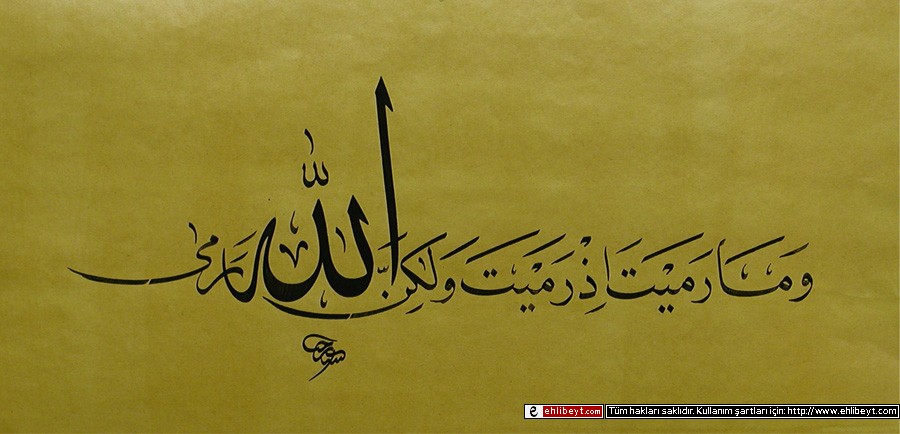 وَمَا رَمَيْتَ اِذْ رَمَيْتَ وَلٰكِنَّ اللّٰهَ رَمٰى
ehlibeyt.com Tüm hakları saklıdır. Kullanım şartları için: http://www.ehlibeyt.com